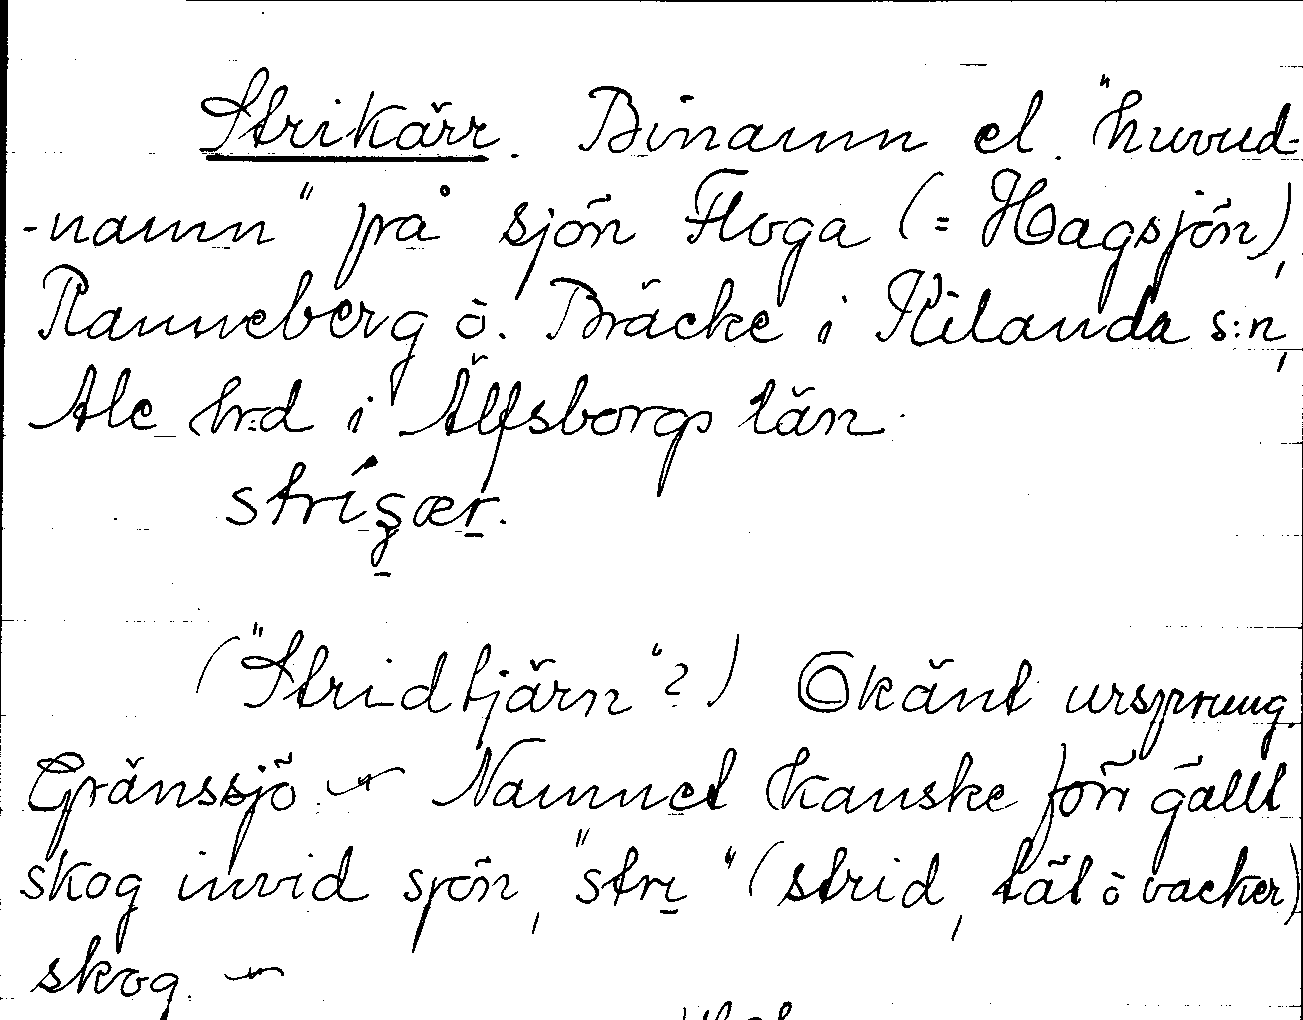 Strikärr. Binamn el. "huvud-
-namn" på sjön Floga (= Hagsjön),
Ranneberg ö. Bräcke i Kilanda s:n,
Ale h:d i Älfsborgs län.
("Stridtjärn"?) Okänt ursprung.
Gränssjö. – Namnet kanske förr gällt
skog invid sjön, "stri" (strid, tät o vacker)
skog. –